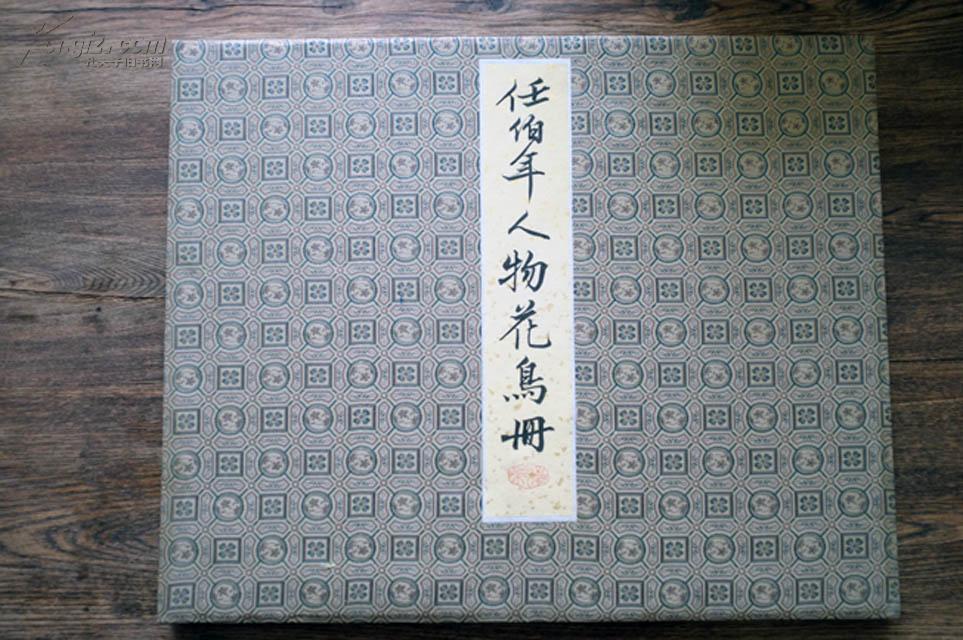 任伯年人物花鳥冊
kongfz.com
孔夫子旧书网